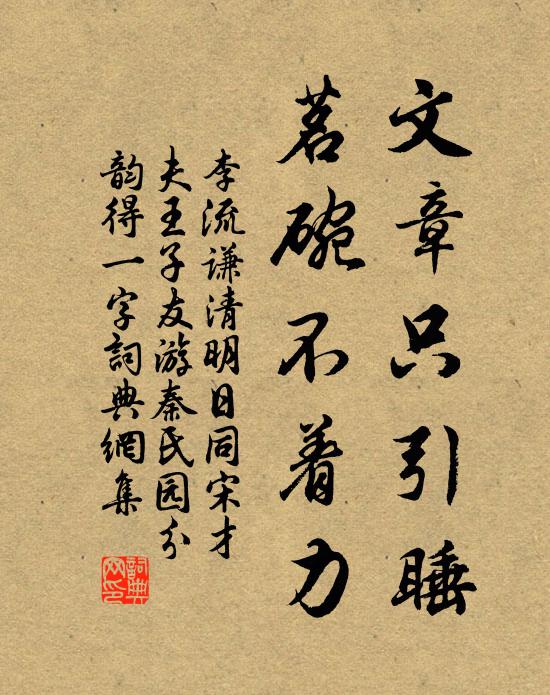 文章只引睡
茗碗不着力
李流谦清明日同宋才
夫王子友游秦氏园分
韵得一字詞典網集
詞典
网印